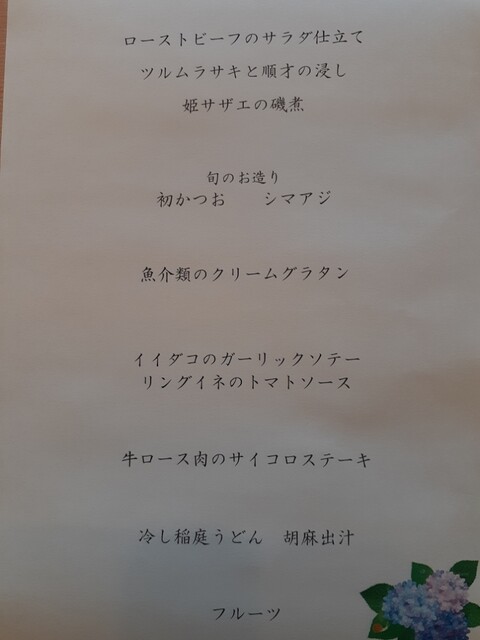 ローストビーフのサラダ仕立て
ツルムラサキと順才の浸し
姫サザエの磯煮
旬のお造り
初かつお　　シマアジ
魚介類のクリームグラタン
イイダコのガーリックソテー
リングイネのトマトソース
牛ロース肉のサイコロステーキ
冷し稲庭うどん　胡麻出汁
フルーツ